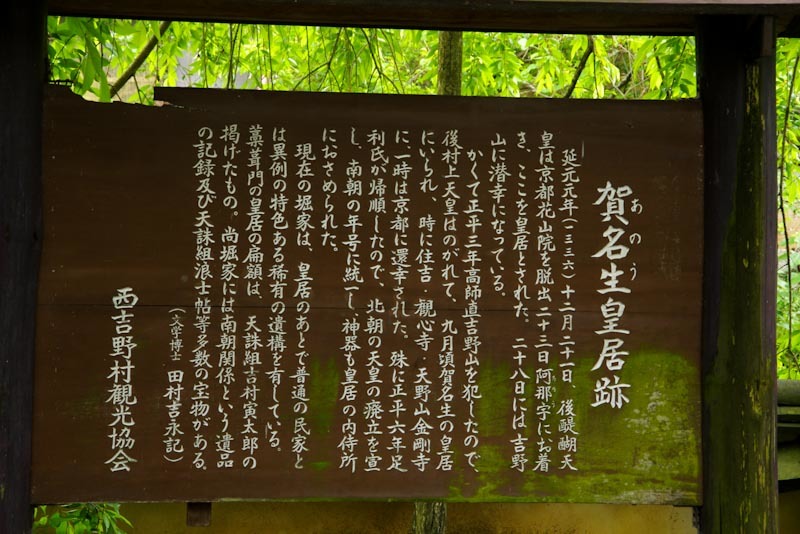 賀名生皇居跡
あのう
延元元年(一三三六)十二月二十一日、後醍醐天
皇は京都花山院を脱出二十三日阿那宇にお着
き、ここを皇居とされた。二十八日には吉野
山に潜幸になっている。
かくて正平三年高師直吉野山を犯したので、
後村上天皇はのがれて、九月頃賀名生の皇居
にいられ、時に住吉・観心寺・天野山金剛寺
に、一時は京都に還幸された。殊に正平六年足
利氏が帰順したので、北朝の天皇の廃立を宣
し、南朝の年号に統一し、神器も皇居の内侍所
におさめられた。
現在の堀家は、皇居のあとで普通の民家と
は異例の特色ある稀有の遺構を有している。
藁葺門の皇居の扁額は、天誅組吉村寅太郎の
掲げたもの。尚堀家には南朝関係という遺品
の記録及び天誅組浪士帖等多数の宝物がある。
(文学博士 田村吉永記)
西吉野村観光協会